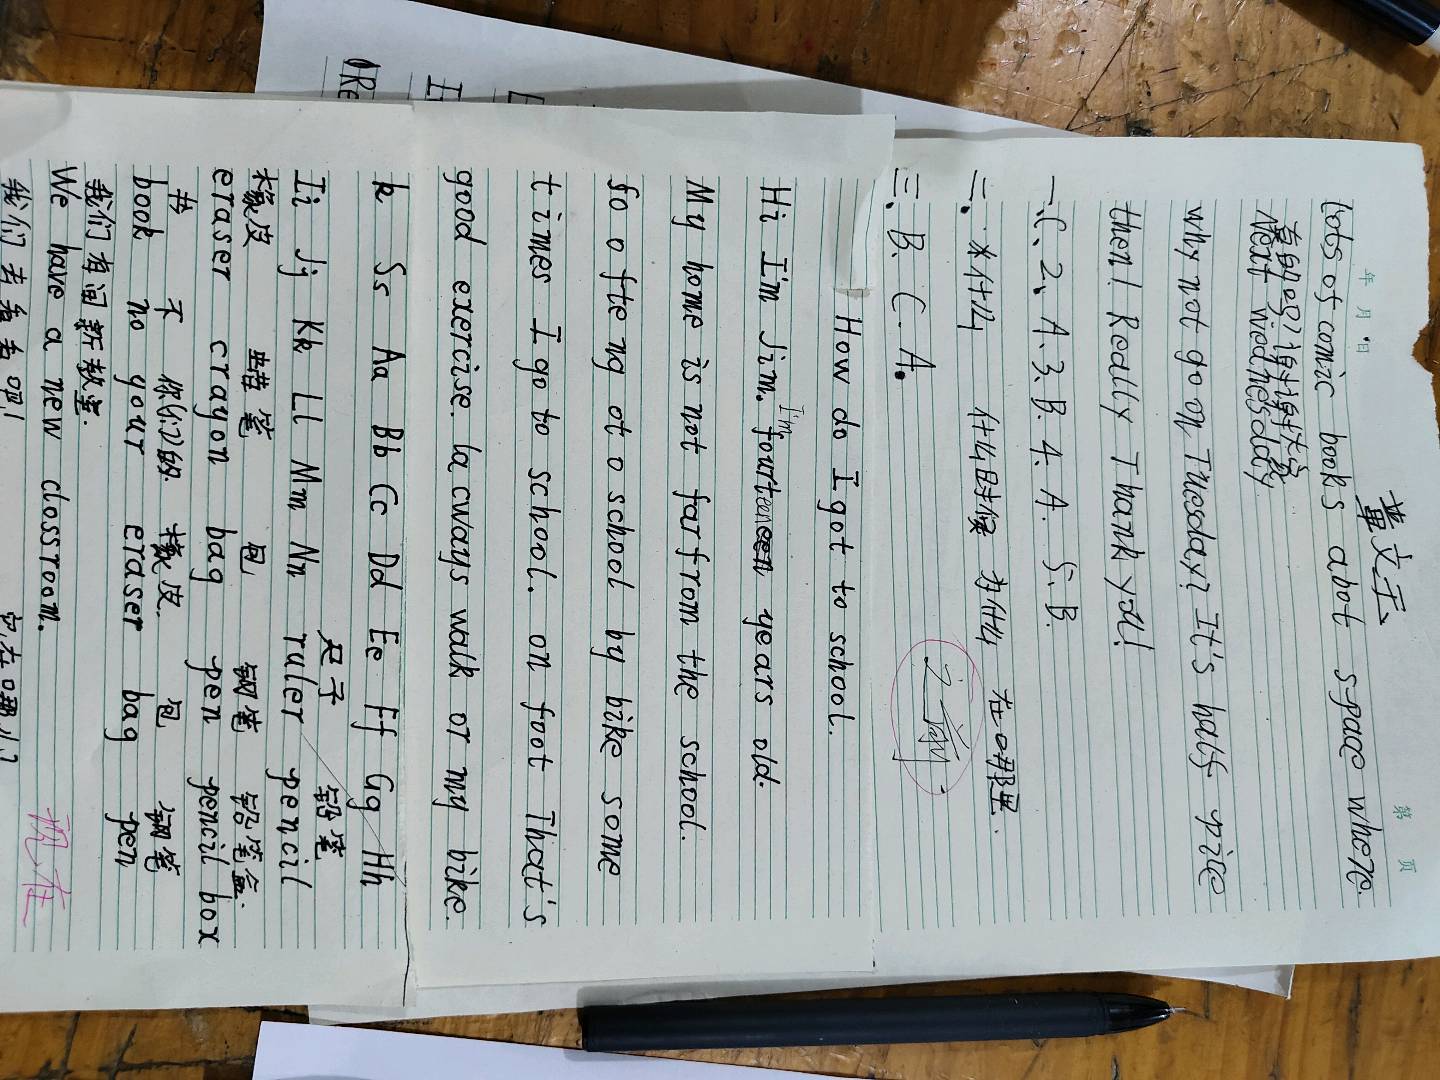 董文宇
年 月 日
第 页
Lots of comic books abot space where.
真的吗!谢谢大家
Next wednesday
why not go on Tuesday? It's half price
then! Really Thank you!
一、C. 2、A. 3. B. 4. A. 5. B.
二. 什么 什么时候 为什么 在哪里.
三、B. C. A.
How do I got to school.
Hi I'm Jim. I'm fourteen years old.
My home is not far from the school.
So o fteng ot o school by bike some
times I go to school. on foot That's
good exercise. la cways walk or my bike.
k Ss Aa Bb Cc Dd Ee Ff Gg Hh
尺子 铅笔
Ii Jj Kk Ll Mm Nn ruler pencil
橡皮 蜡笔 包 钢笔 铅笔盒.
eraser crayon bag pen pencil box
书 不 你们的 橡皮 包 钢笔
book no your eraser bag pen
我们有间新教室.
We have a new clossroom.
我们去看看吧! 它在哪儿?
现在
(RE